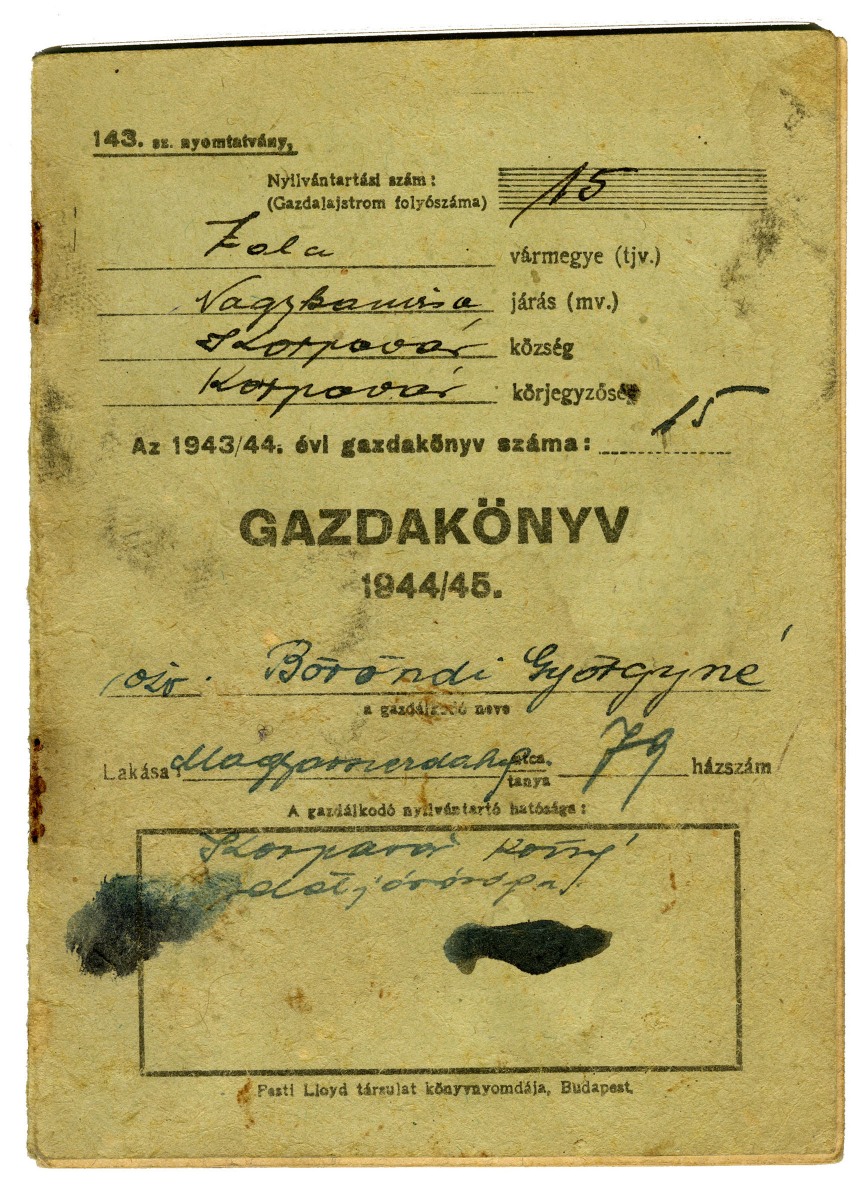 143. sz. nyomtatvány.
Nyilvántartási szám: 15
(Gazdalajstrom folyószáma)
Zala vármegye (tjv.)
Nagykanizsa járás (mv.)
Korpavár község
Korpavár körjegyzőség
Az 1943/44. évi gazdakönyv száma: 15
GAZDAKÖNYV
1944/45.
özv. Böröndi Györgyné
a gazdálkodó neve
Lakása: utca, tanya 79 házszám
A gazdálkodó nyilvántartó hatósága:
Korpavár
Pesti Lloyd társulat könyvnyomdája, Budapest.